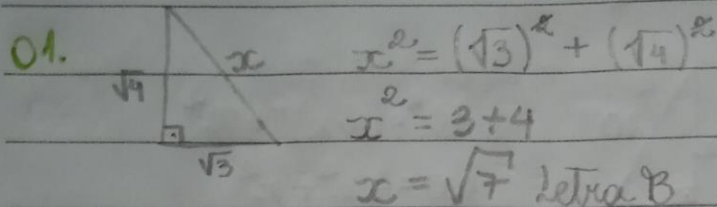 01.
√4
x
√3
x² = (√3)² + (√4)²
x² = 3+4
x = √7 Letra B